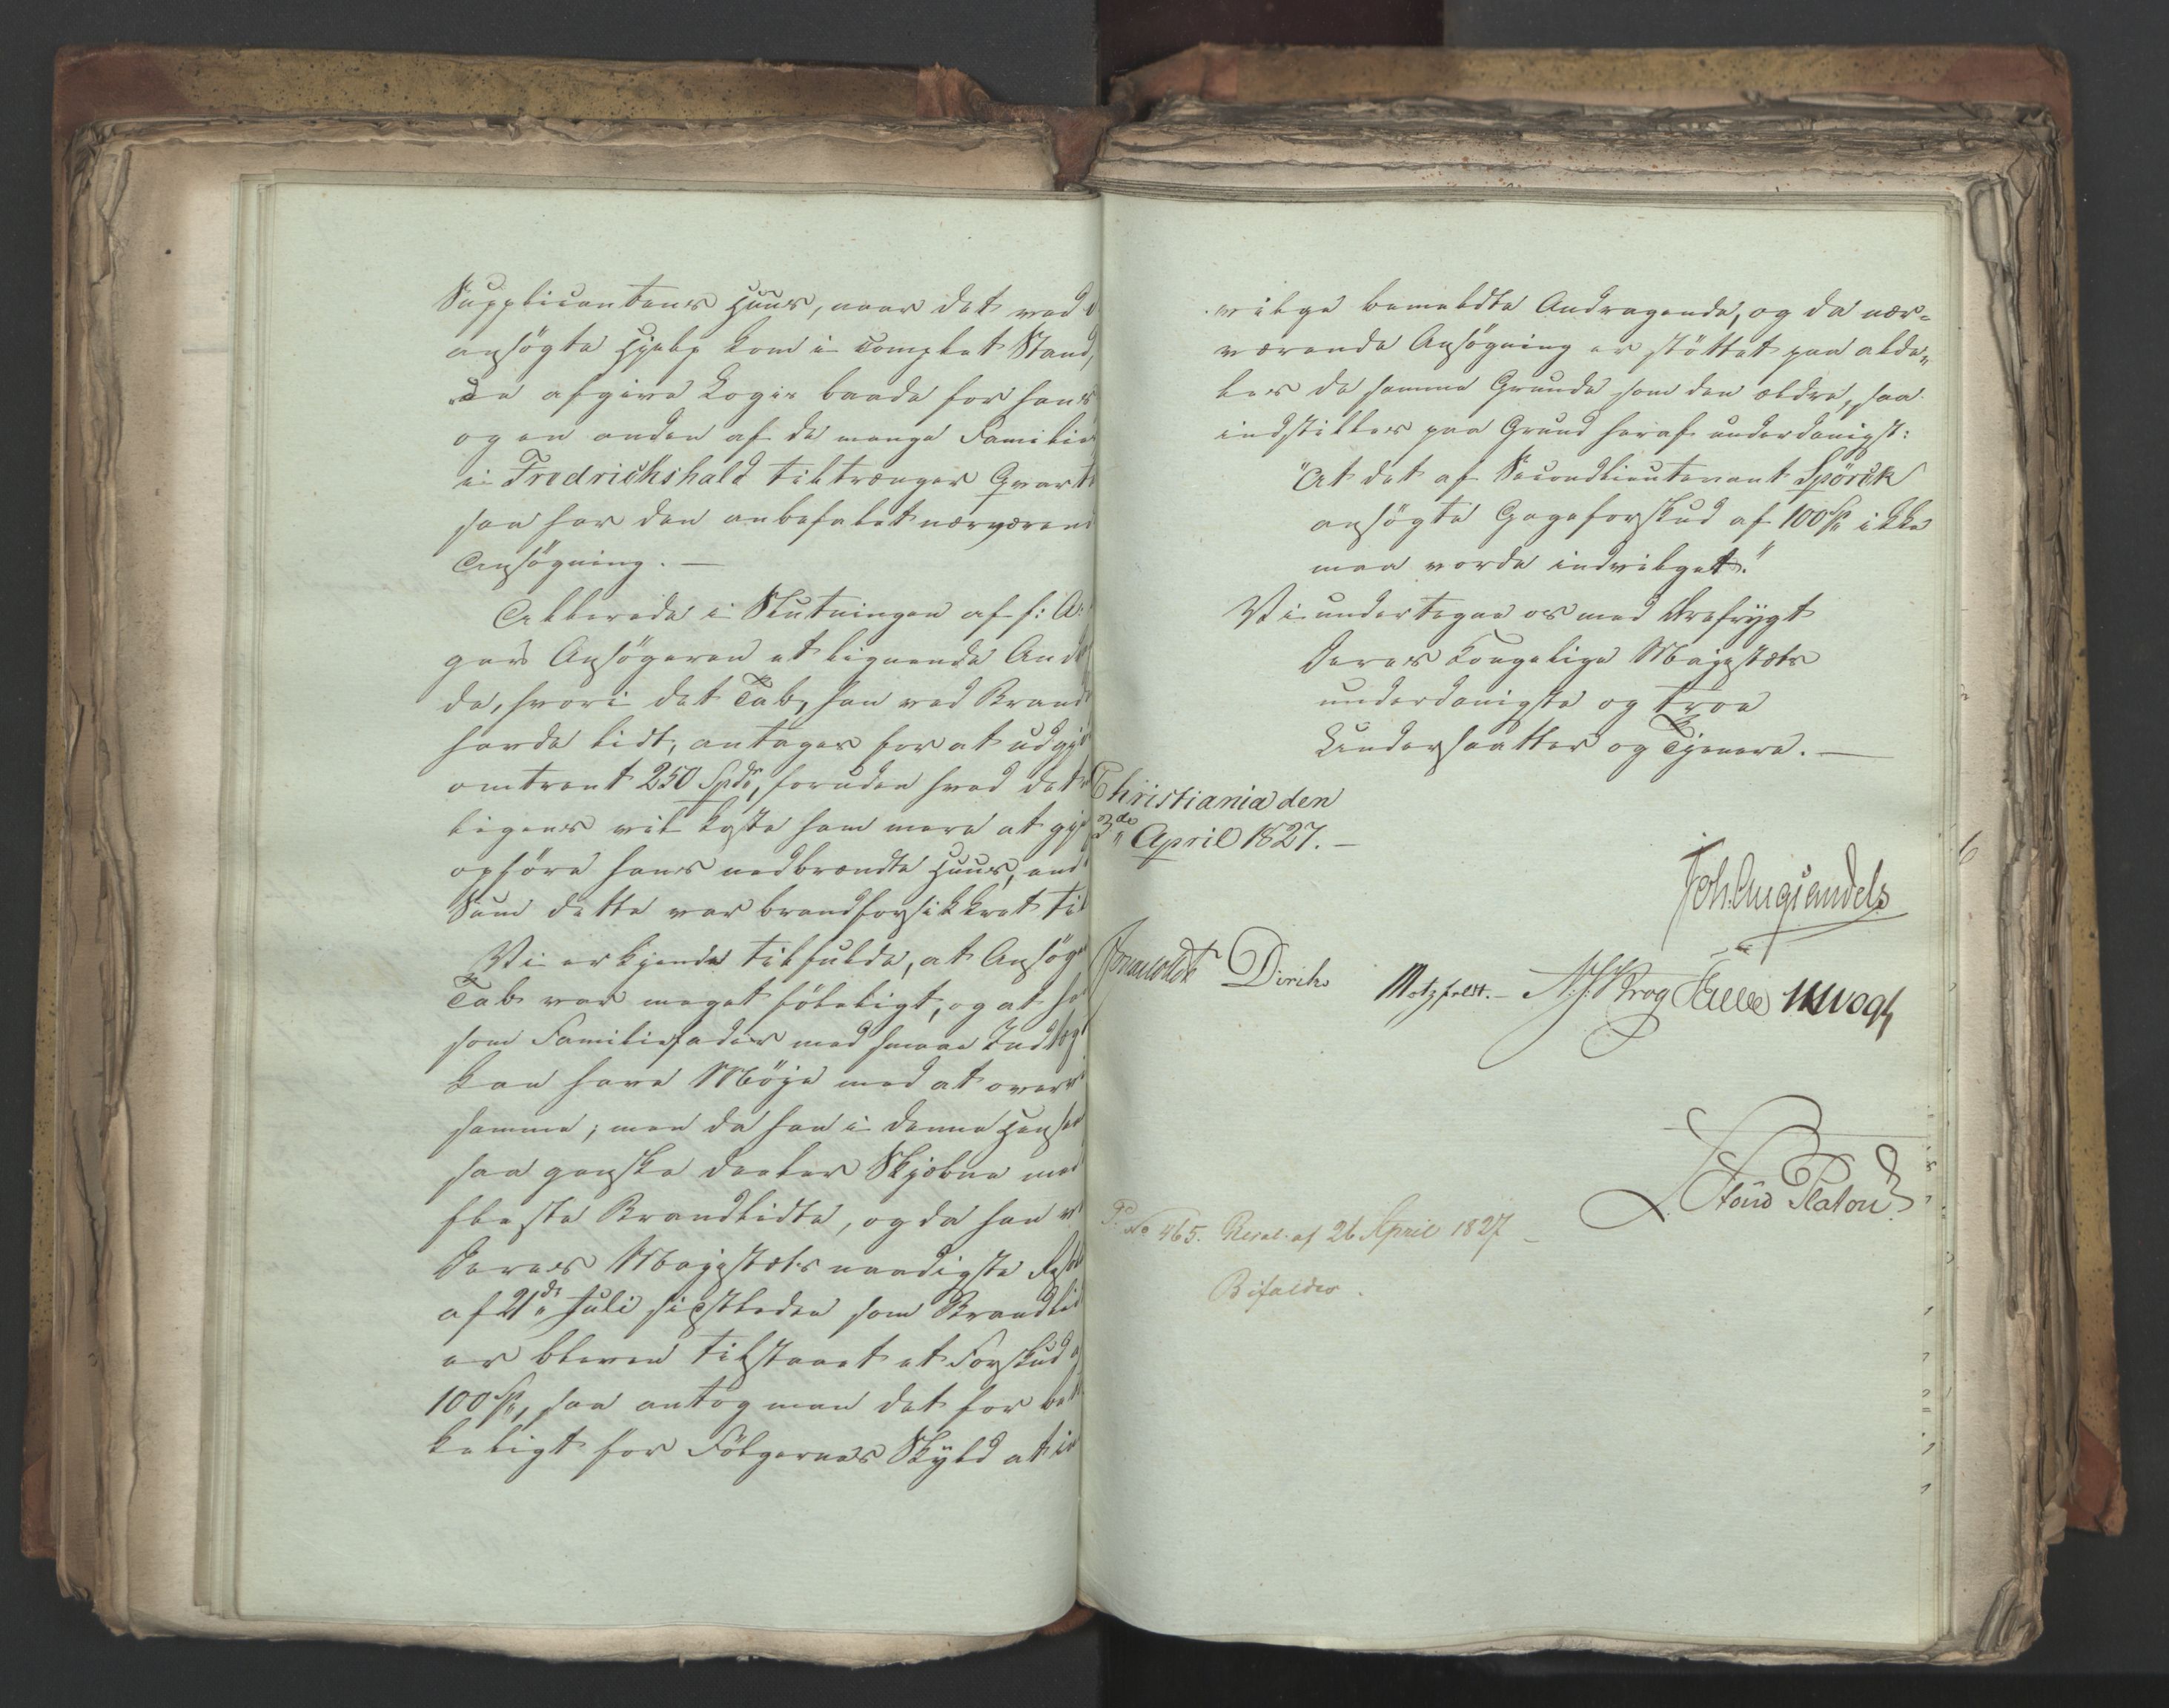 Supplicantens Huus, naar det ved d
ansögte Hjelp kom i complet Stand,
de afgive Logie baade for hans
og en anden af de mange Familie
i Fredrichshald tiltrænger Qvart
saa har den anbefalet nærværend
Ansögning. —
Allerede i Slutningen af f: A:
gav Ansögeren et lignende And
de, hvori det Tab, han ved Brand
havde lidt, antages for at udgjö
omtrent 250 Spdr, foruden hvad det
ligens vil koste ham mere at gje
opföre hans nedbrændte Huus, end
Sum dette var brandforsikkret til
Vi erkjende tilfulde, at Ansög
Tab var meget föleligt, og at ha
som Familiefader med smaae Indtæg
kan have Möje med at overv
samme; men da han i denne Hense
saa ganske deeler Skjæbne med
fleste Brandlidte, og da han v
Deres Majestæts naadigste Resol
af 21de Juli sidstleden som Brandlid
er bleven tilstaaet et Forskud a
100 Sp, saa antog man det for be
keligt for Fölgernes Skyld at in
vilge bemeldte Andragende, og da nær=
værende Ansögning er stöttet paa alde=
les de samme Grunde som den ældre, saa
indstilles paa Grund heraf underdanigst:
"At det af Secondlieutenant Spörck
ansögte Gageforskud af 100 Sp ikke
maa vorde indvilget."
Vi undertegne os med Ærefrygt
Deres Kongelige Majestæts
underdanigste og troe
Undersaatter og Tjenere. —
Christiania den
3de April 1827. —
Joh. Aug. Sandels
Diriks Motzfeldt. — Krog JHVogt
Stoud Platou
P. No 465. Resol. af 26 April 1827 —
Bifaldes.